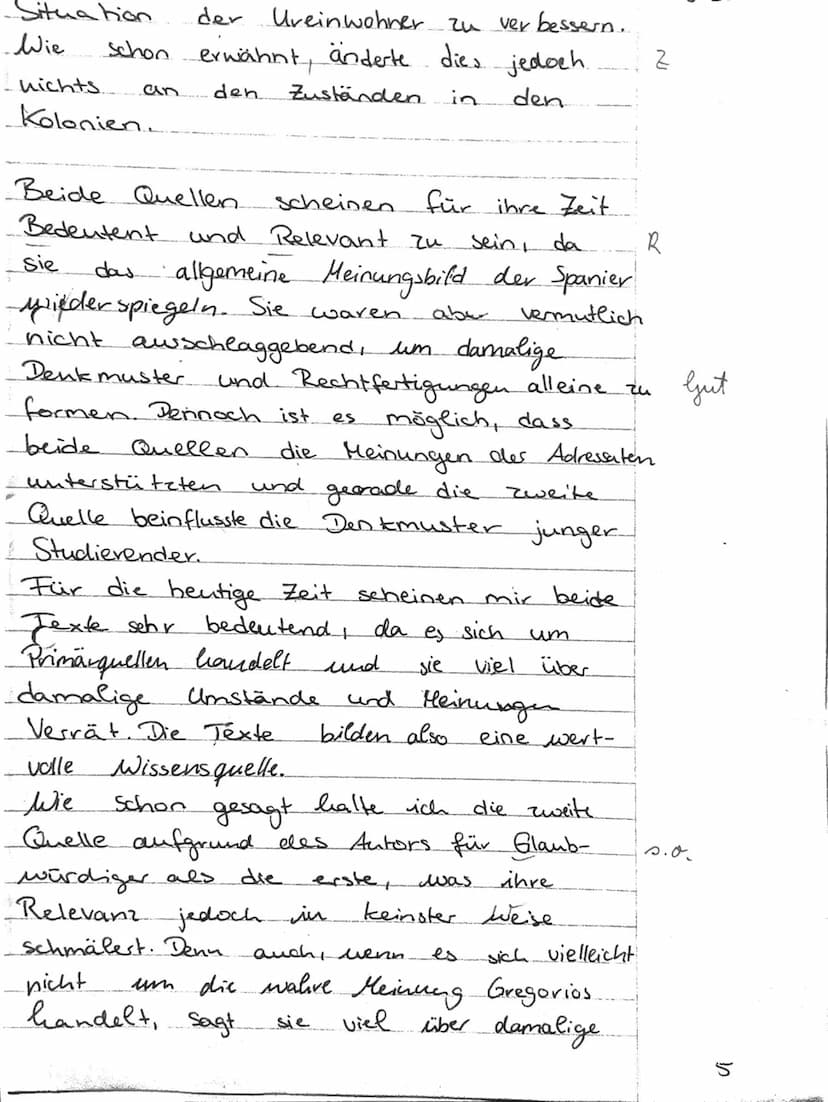 Situation der Ureinwohner zu verbessern.
Wie schon erwähnt, änderte dies jedoch Z
nichts an den Zuständen in den
Kolonien.
Beide Quellen scheinen für ihre Zeit
Bedeutent und Relevant zu sein, da R
sie das allgemeine Meinungsbild der Spanier
wiederspiegeln. Sie waren aber vermutlich
nicht ausschlaggebend, um damalige
Denkmuster und Rechtfertigungen alleine zu Gut
formen. Dennoch ist es möglich, dass
beide Quellen die Meinungen der Adressaten
unterstützten und gerade die zweite
Quelle beinflusste die Denkmuster junger
Studierender.
Für die heutige Zeit scheinen mir beide
Texte sehr bedeutend, da es sich um
Primärquellen handelt und sie viel über
damalige Umstände und Meinungen
Verrät. Die Texte bilden also eine wert-
volle Wissensquelle.
Wie schon gesagt halte ich die zweite
Quelle aufgrund des Autors für Glaub- s.o.
würdiger als die erste, was ihre
Relevanz jedoch in keinster Weise
schmälert. Denn auch, wenn es sich vielleicht
nicht um die wahre Meinung Gregorios
handelt, sagt sie viel über damalige
5